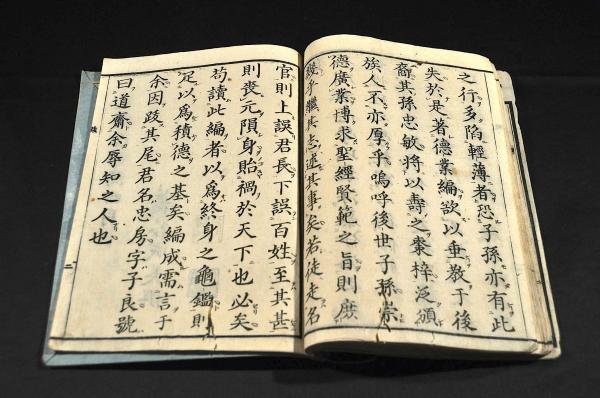 之行多陷輕薄者恐子孫亦有此
失於是著德業編欲以垂教于後
裔其孫忠敏將以壽之棗梓泛頒
族人不亦厚乎嗚呼後世子孫崇
德廣業博求聖經賢範之旨則庶
幾乎繼其志述其事矣若徒走名
官則上誤君長下誤百姓至其甚
則喪元隕身貽禍於天下也必矣
苟讀此編者以爲終身之龜鑑則
足以爲積德之基矣編成需言于
余因跋其尾君名忠房字子良號
曰道齋余辱知之人也